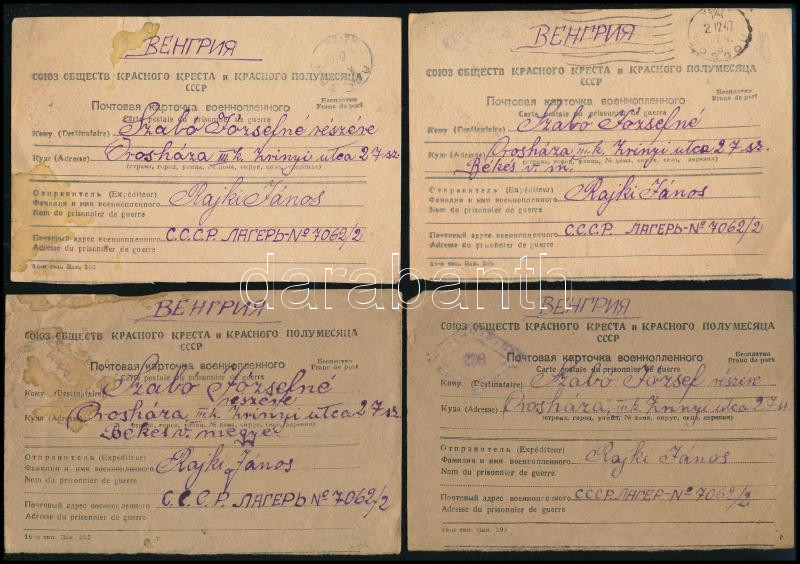 ВЕНГРИЯ
СОЮЗ ОБЩЕСТВ КРАСНОГО КРЕСТА и КРАСНОГО ПОЛУМЕСЯЦА
СССР
Почтовая карточка военнопленного
Бесплатно
Carte postale du prisonnier de guerre
Franc de port
Кому (Destinataire) Szabó Józsefné részére
Куда (Adresse) Orosháza III.k. Zrinyi utca 27 sz.
(страна, город, улица, № дома, округ, село, деревня)
Отправитель (Expéditeur)
Фамилия и имя военнопленного Rajki János
Nom du prisonnier de guerre
Почтовый адрес военнопленного С.С.С.Р. ЛАГЕРЬ-№ 7062/2
Adresse du prisonnier de guerre
16-я тип. Зак. 395
ВЕНГРИЯ
2 12 47
СОЮЗ ОБЩЕСТВ КРАСНОГО КРЕСТА и КРАСНОГО ПОЛУМЕСЯЦА
СССР
Почтовая карточка военнопленного
Бесплатно
Carte postale du prisonnier de guerre
Franc de port
Кому (Destinataire) Szabó Józsefné
Куда (Adresse) Orosháza III.k. Zrinyi utca 27 sz.
(страна, город, улица, № дома, округ, село, деревня)
Békés v. m.
Отправитель (Expéditeur)
Фамилия и имя военнопленного Rajki János
Nom du prisonnier de guerre
Почтовый адрес военнопленного С.С.С.Р. ЛАГЕРЬ-№ 7062/2
Adresse du prisonnier de guerre
16-я тип. Зак. 395
darabanth
ВЕНГРИЯ
СОЮЗ ОБЩЕСТВ КРАСНОГО КРЕСТА и КРАСНОГО ПОЛУМЕСЯЦА
СССР
Почтовая карточка военнопленного
Бесплатно
Carte postale du prisonnier de guerre
Franc de port
Кому (Destinataire) Szabó Józsefné
részére
Куда (Adresse) Orosháza III.k. Zrinyi utca 27 sz.
(страна, город, улица, № дома, округ, село, деревня)
Békés v. megye
Отправитель (Expéditeur)
Фамилия и имя военнопленного Rajki János
Nom du prisonnier de guerre
Почтовый адрес военнопленного С.С.С.Р. ЛАГЕРЬ № 7062/2
Adresse du prisonnier de guerre
16-я тип. Зак. 395
ВЕНГРИЯ
СОЮЗ ОБЩЕСТВ КРАСНОГО КРЕСТА и КРАСНОГО ПОЛУМЕСЯЦА
СССР
Почтовая карточка военнопленного
Бесплатно
Carte postale du prisonnier de guerre
Franc de port
Кому (Destinataire) Szabó József részére
Куда (Adresse) Orosháza, III.k. Zrinyi utca 27
(страна, город, улица, № дома, округ, село, деревня)
Отправитель (Expéditeur)
Фамилия и имя военнопленного Rajki János
Nom du prisonnier de guerre
Почтовый адрес военнопленного СССР. ЛАГЕР-№ 7062/2
Adresse du prisonnier de guerre
16-я тип. Зак. 395